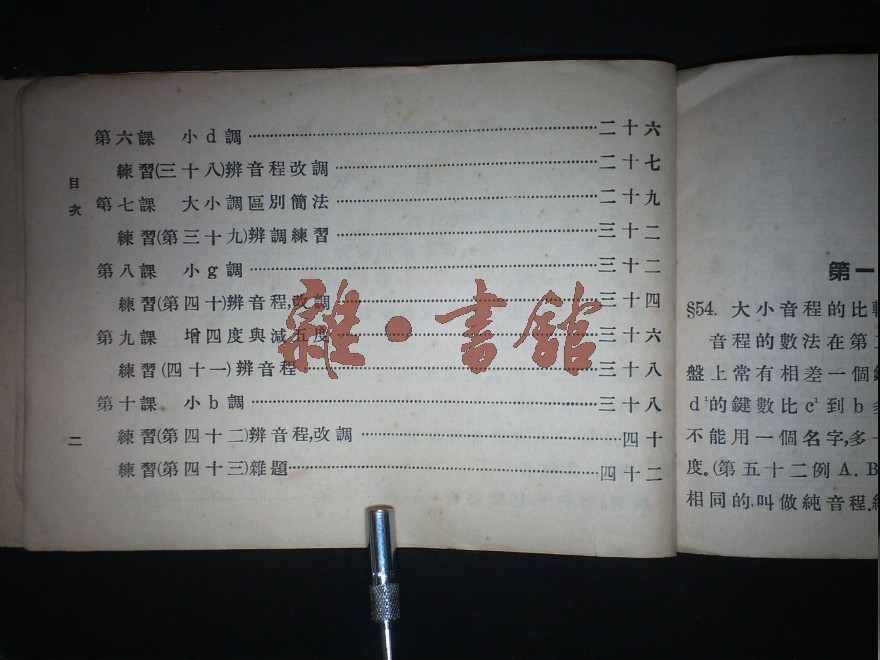 第六課 小d調……二十六
練習(三十八)辨音程改調……二十七
目次
第七課 大小調區別簡法……二十九
練習(第三十九)辨調練習……三十二
第八課 小g調……三十二
練習(第四十)辨音程,改調……三十四
第九課 增四度與減五度……三十六
練習(四十一)辨音程……三十八
第十課 小b調……三十八
練習(第四十二)辨音程,改調……四十
練習(第四十三)雜題……四十二
二
雜·書館
第一
§54. 大小音程的比較
音程的數法在第二
盤上常有相差一個鍵
d¹的鍵數比c¹到b多
不能用一個名字,多一
度。(第五十二例 A. B
相同的,叫做純音程.